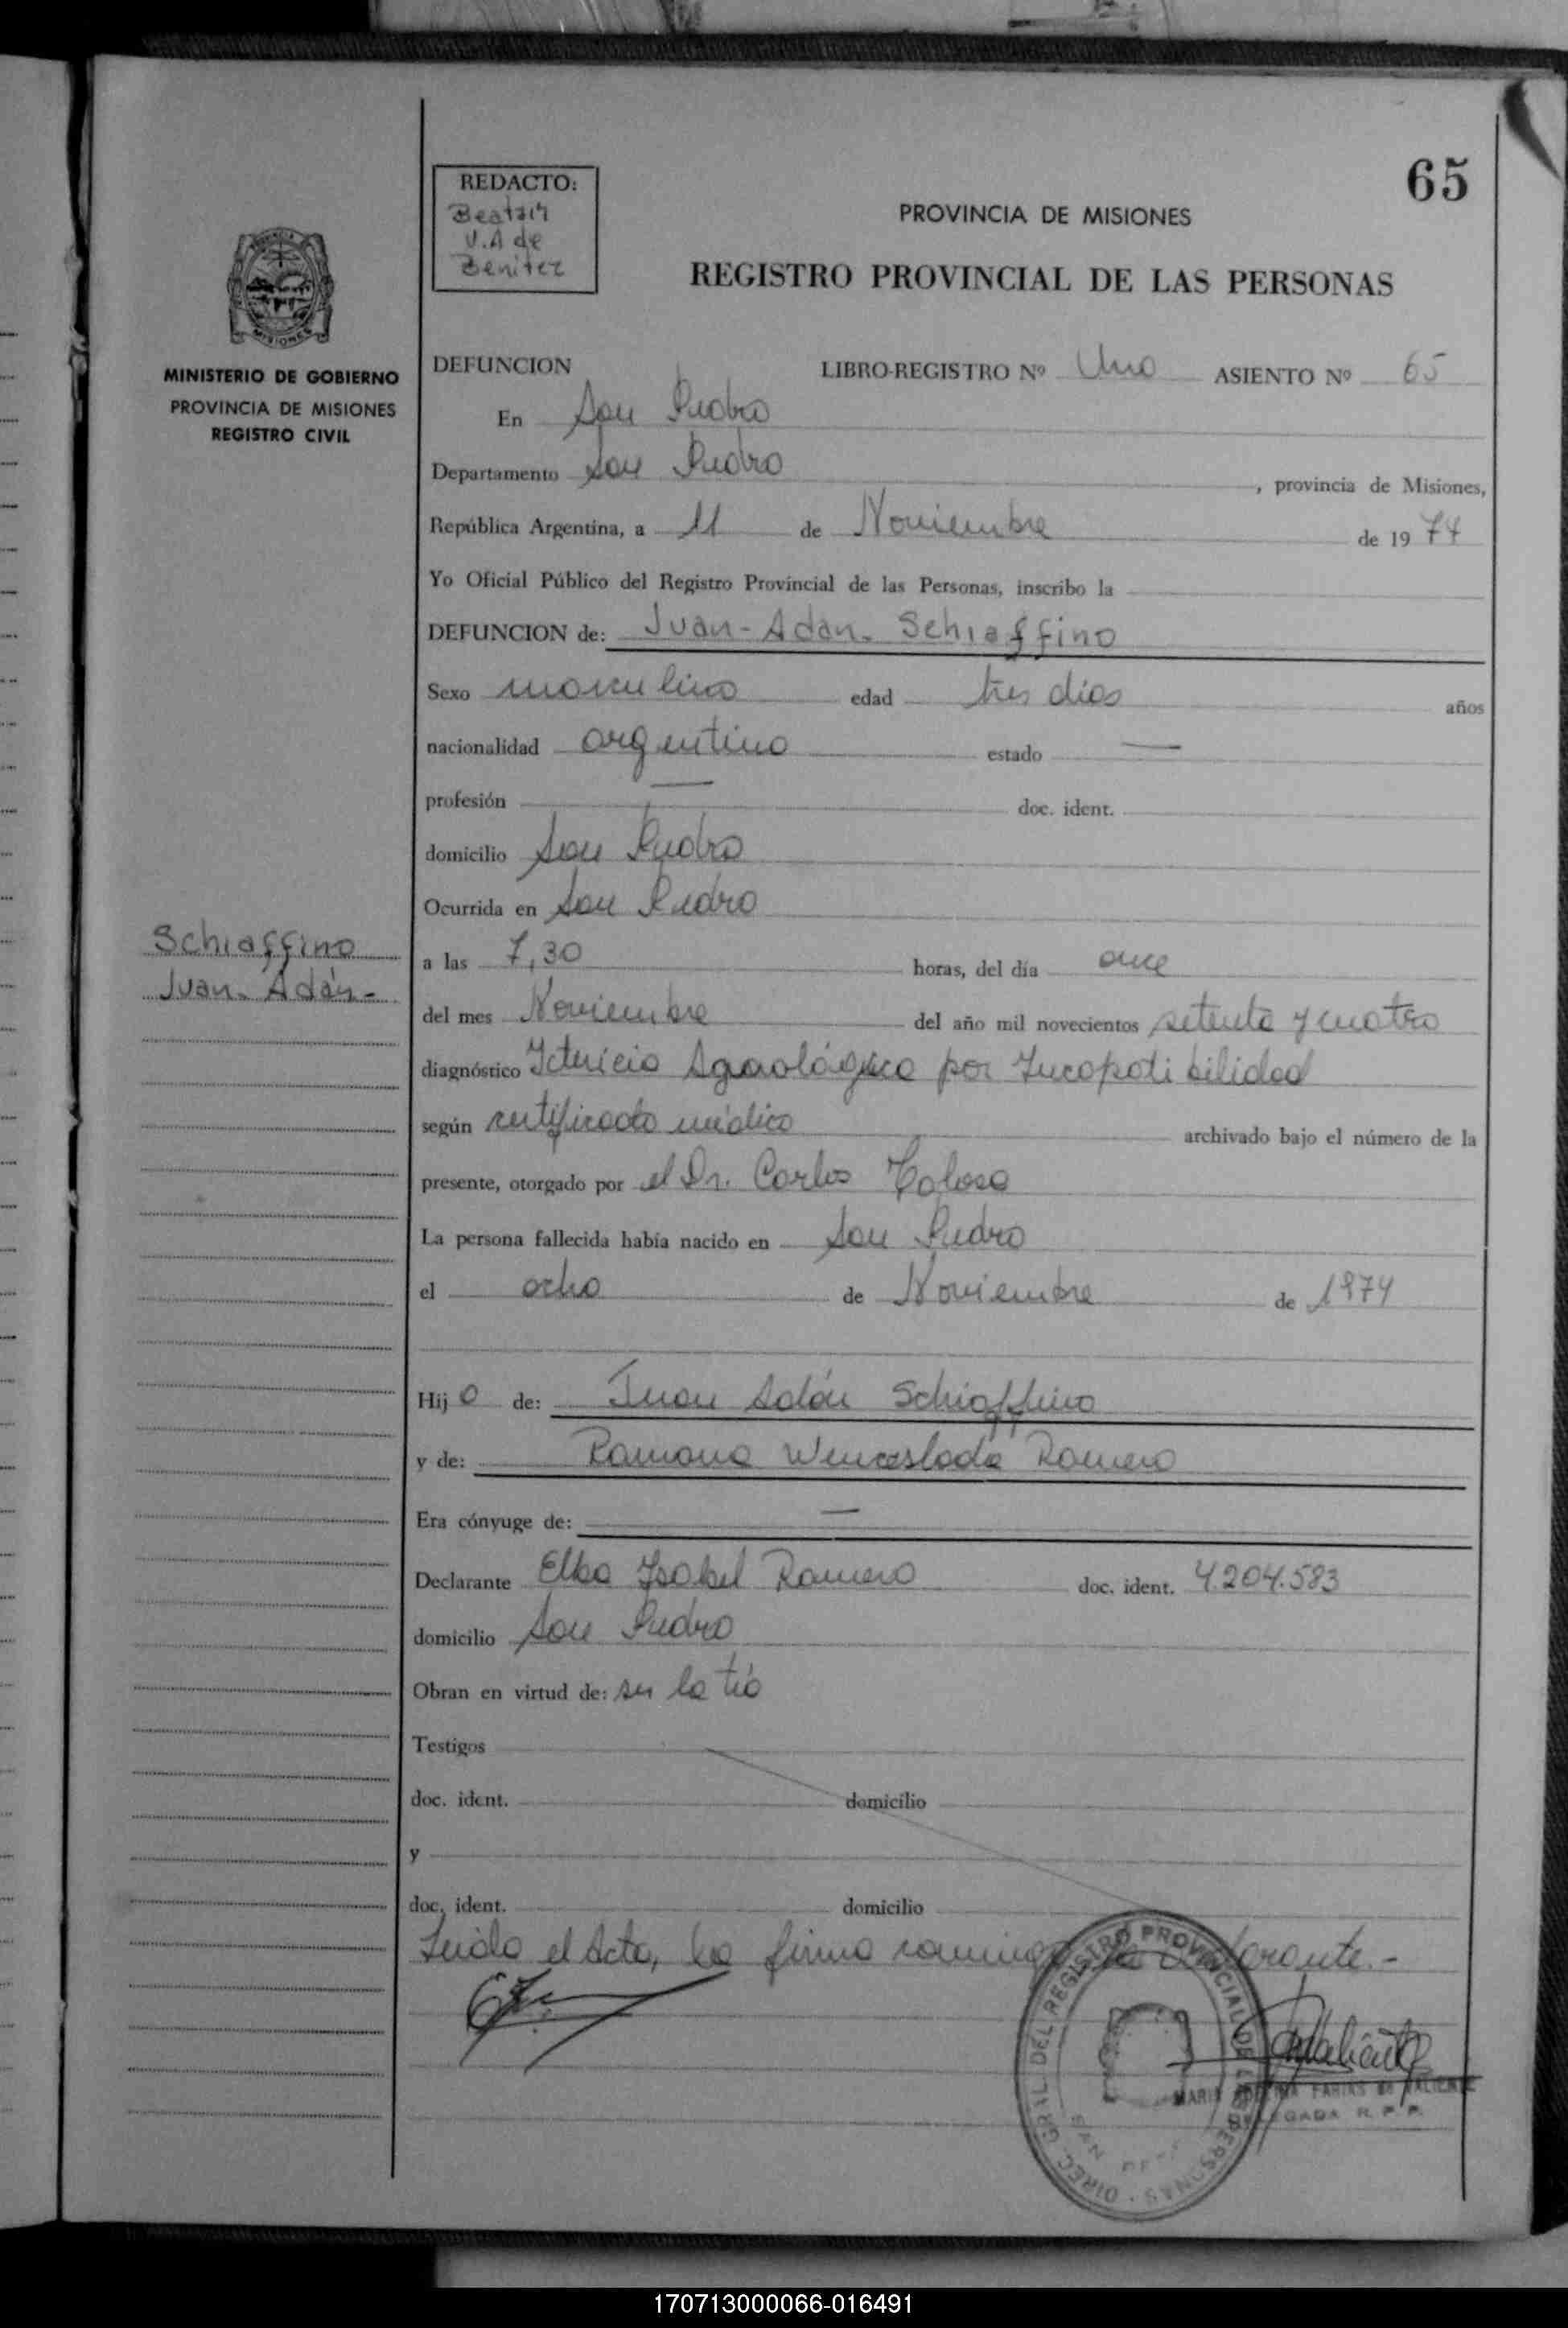 65
REDACTO:
Beatriz
V.A de
Benitez
PROVINCIA DE MISIONES
REGISTRO PROVINCIAL DE LAS PERSONAS
MISIONES
MINISTERIO DE GOBIERNO
PROVINCIA DE MISIONES
REGISTRO CIVIL
DEFUNCION LIBRO-REGISTRO Nº Uno ASIENTO Nº 65
En San Pedro
Departamento San Pedro, provincia de Misiones,
República Argentina, a 11 de Noviembre de 1974
Yo Oficial Público del Registro Provincial de las Personas, inscribo la
DEFUNCION de: Juan-Adan. Schiaffino
Sexo masculino edad tres días años
nacionalidad argentino estado —
profesión — doc. ident.
domicilio San Pedro
Ocurrida en San Pedro
Schiaffino
Juan. Adán-
a las 7,30 horas, del día once
del mes Noviembre del año mil novecientos setenta y cuatro
diagnóstico Ictericia por Incopatibilidad
según certificado médico archivado bajo el número de la
presente, otorgado por el Dr. Carlos Tolosa
La persona fallecida había nacido en San Pedro
el ocho de Noviembre de 1974
Hijo de: Juan Adán Schiaffino
y de: Ramona Wenceslada Romero
Era cónyuge de: —
Declarante Elba Isabel Romero doc. ident. 4.204.583
domicilio San Pedro
Obran en virtud de: ser la tía
Testigos
doc. ident. domicilio
y
doc. ident. domicilio
Leida el Acta, la firma conmigo la declarante.-
DIREC. GRAL. DEL REGISTRO PROVINCIAL DE LAS PERSONAS
SAN
MARIA FARIAS DE VALIENTE
DELEGADA R. P. P.
170713000066-016491